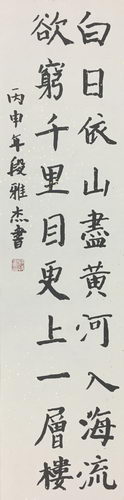 白日依山盡黃河入海流
欲窮千里目更上一層樓
丙申年段雅杰書